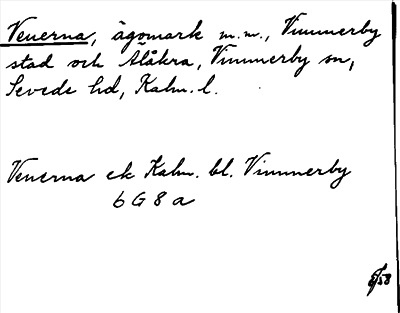 Venerna, ägomark m.m., Vimmerby
stad och Älåkra, Vimmerby sn,
Sevede hd, Kalm. l.
Venerna ek Kalm. bl. Vimmerby
6 G 8 a
/58